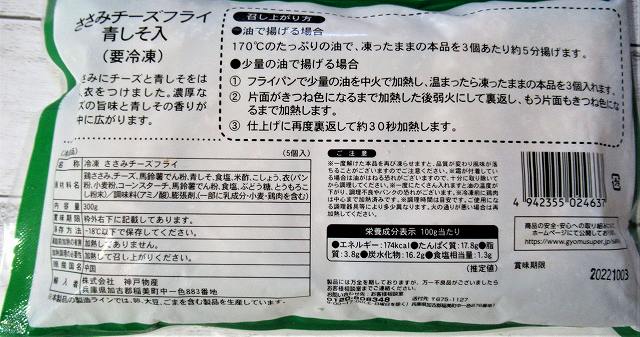 ささみチーズフライ
青しそ入
(要冷凍)
さみにチーズと青しそをは
衣をつけました。濃厚な
ズの旨味と青しその香りが
中に広がります。
召し上がり方
●油で揚げる場合
170℃のたっぷりの油で、凍ったままの本品を3個あたり約5分揚げます。
●少量の油で揚げる場合
① フライパンで少量の油を中火で加熱し、温まったら凍ったままの本品を3個入れます。
② 片面がきつね色になるまで加熱した後弱火にして裏返し、もう片面もきつね色になるまで加熱します。
③ 仕上げに再度裏返して約30秒加熱します。
(5個入)
名称 冷凍 ささみチーズフライ
原材料名 鶏ささみ、チーズ、馬鈴薯でん粉、青しそ、食塩、米酢、こしょう、衣(パン
粉、小麦粉、コーンスターチ、馬鈴薯でん粉、食塩、ぶどう糖、とうもろこ
し粉末)/調味料(アミノ酸)、膨張剤、(一部に乳成分・小麦・鶏肉を含む)
内容量 300g
賞味期限 枠外右下に記載してあります。
保存方法 -18℃以下で保存してください。
加熱してありません。
加熱して召し上がりください。
原産国名 中国
輸入者 株式会社 神戸物産
兵庫県加古郡稲美町中一色883番地
本製品の製造ラインでは、卵、大豆、ごまを含む製品も生産しています。
ご注意
※一度解けた本品を再び凍らせますと、品質が変わり風味が落
ちることがございますのでご注意ください。※霜が付着してい
る場合は油がはねる恐れがございますので、十分に取り除いて
から調理してください。※一度にたくさん入れますと油の温度が
下がり、調理不良やパンクの恐れがございます。※冷凍前に鶏肉
は中心まで加熱済みです。※調理時間は目安です。ご使用にな
る調理器具等により多少異なります。火の通りが悪い場合は再
加熱してください。
栄養成分表示 100g当たり
●エネルギー:174kcal●たんぱく質:17.8g●脂
質:3.8g●炭水化物:16.2g●食塩相当量:1.3g
(推定値)
製品には万全を期しておりますが、万一不良品がございましたら
お客様相談室までご連絡ください。
お客様相談室
0120-808348
送付先 〒675-1127
兵庫県加古郡稲美町中一色876-1
4 942355 024637
商品の安全・安心への取り組みを
ホームページにて公開しております。
https://www.gyomusuper.jp/namaz
賞味期限
20221003